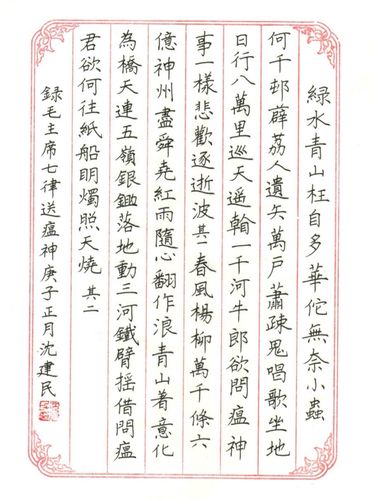 綠水青山枉自多華佗無奈小蟲
何千邨薜荔人遺矢萬戶蕭疎鬼唱歌坐地
日行八萬里巡天遥翰一千河牛郎欲問瘟神
事一樣悲歡逐逝波其一春風楊柳萬千條六
億神州盡舜堯紅雨隨心翻作浪青山著意化
為橋天連五嶺銀鋤落地動三河鐵臂摇借問瘟
君欲何往紙船眀燭照天燒 其二
錄毛主席七律送瘟神庚子正月沈建民